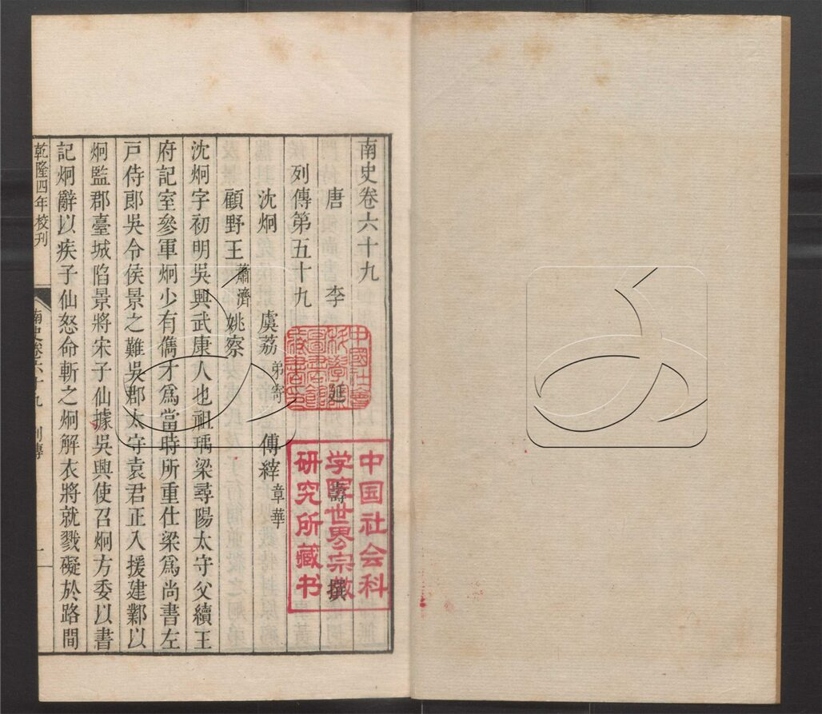 南史卷六十九
唐 李 延 壽 撰
列傳第五十九
沈炯 虞荔 弟寄 傅縡 章華
顧野王 蕭濟 姚察
沈炯字初明吳興武康人也祖瑀梁尋陽太守父續王
府記室參軍炯少有儁才爲當時所重仕梁爲尚書左
戸侍郎吳令侯景之難吳郡太守袁君正入援建鄴以
炯監郡臺城陷景將宋子仙據吳興使召炯方委以書
記炯辭以疾子仙怒命斬之炯解衣將就戮礙於路間
乾隆四年校刋
南史卷六十九 列傳 一
中国社会科
学院世界宗教
研究所藏书
中國社會
科學院
圖書館
藏書